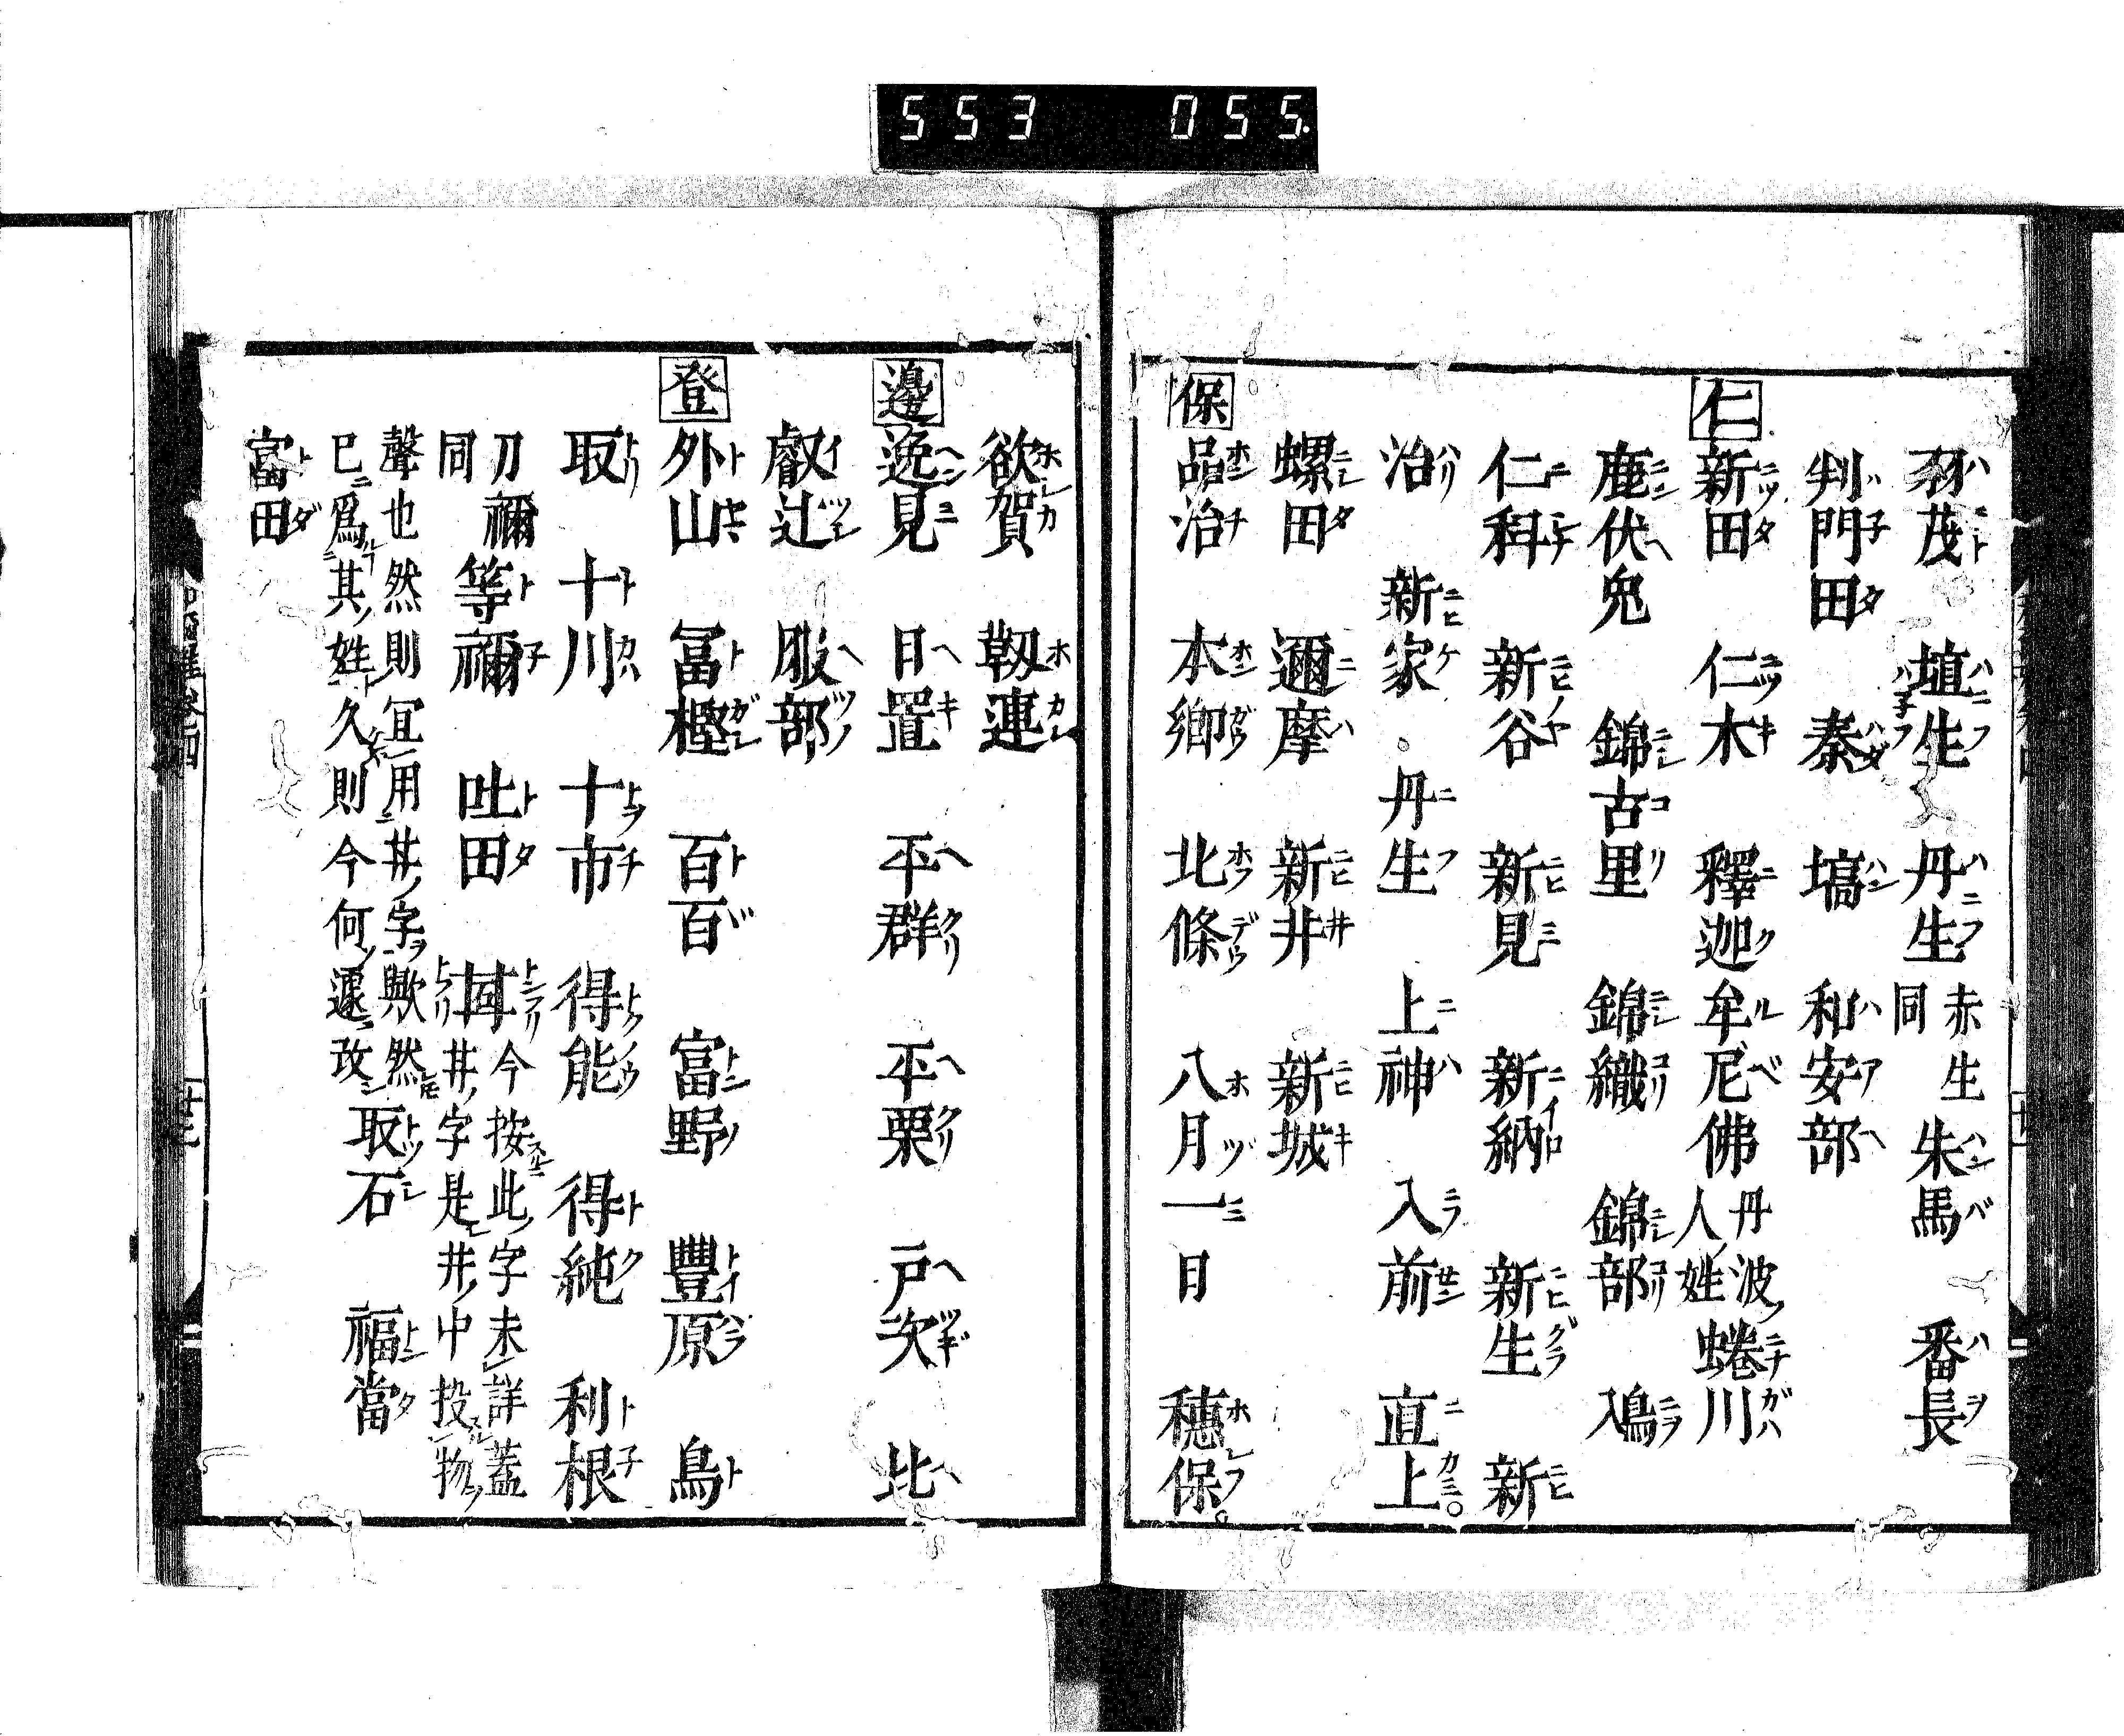 553 055.
羽茂 埴生 丹生 赤生同 朱馬 番長
判門田 秦 塙 和安部
仁 新田 仁木 釋迦牟尼佛 丹波人姓 蜷川
鹿伏兎 錦古里 錦織 錦部 入鳥
仁科 新谷 新見 新納 新生 新
治 新家 丹生 上神 入前 直上
螺田 邇摩 新井 新城
保 品治 本郷 北條 八月一日 穗保
欲賀 靱連
邊 逸見 日置 平群 平栗 戸次 比
叡辻 服部
登 外山 冨樫 百百 富野 豐原 鳥
取 十川 十市 得能 得純 利根
刀禰同 等禰 吐田
今按此字未詳蓋
井字是井中投物
聲也然則宜用丼字歟然
巳爲其姓久則今何遽改 取石 福當
富田